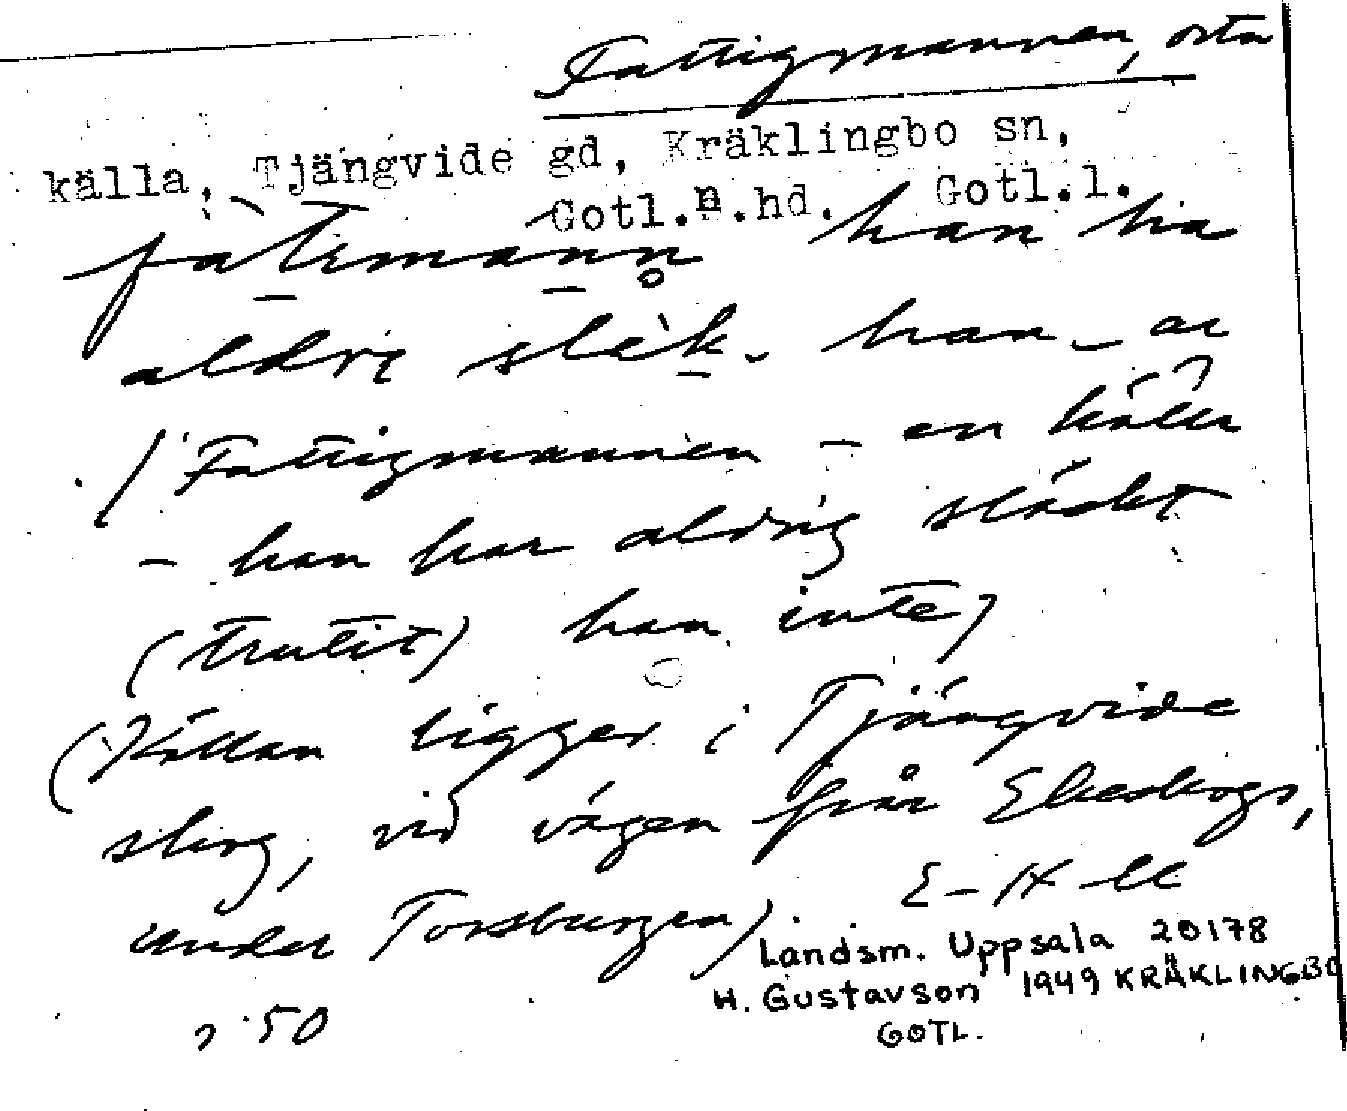 Fattigmannen, osta
källa, Tjängvide gd, Kräklingbo sn,
Gotl.n.hd. Gotl.l.
fatimann han ha
aldri släk. han
(Fattigmannen – en källa
– han har aldrig släckt
(trutit) han inte)
(Källan ligger i Tjängvide
skog, vid vägen från Ekeskogs,
under Torsburgen)
Landsm. Uppsala 20178
H. Gustavson 1949 KRÄKLINGBO
GOTL.
50